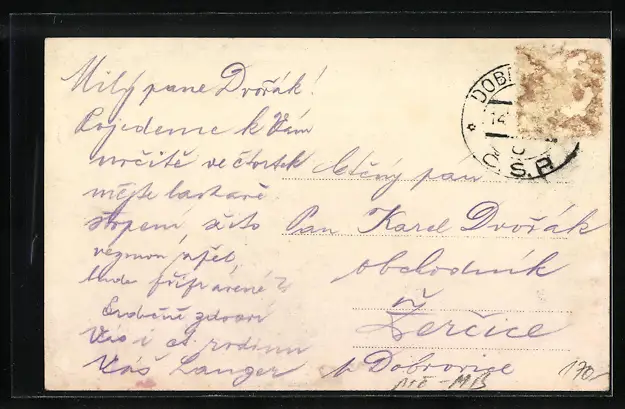 Milý pane Dvořák!
Pojedeme k Vám
určitě ve čtvrtek
mějte laskavě
strpení,
bude připravené
Srdečně zdraví
Vás i ct. rodinu
Váš Langer
DOB
14
Č.S.R.
Ctěný pán
Pan Karel Dvořák
obchodník
v
Žerčice
p. Dobrovice
170-